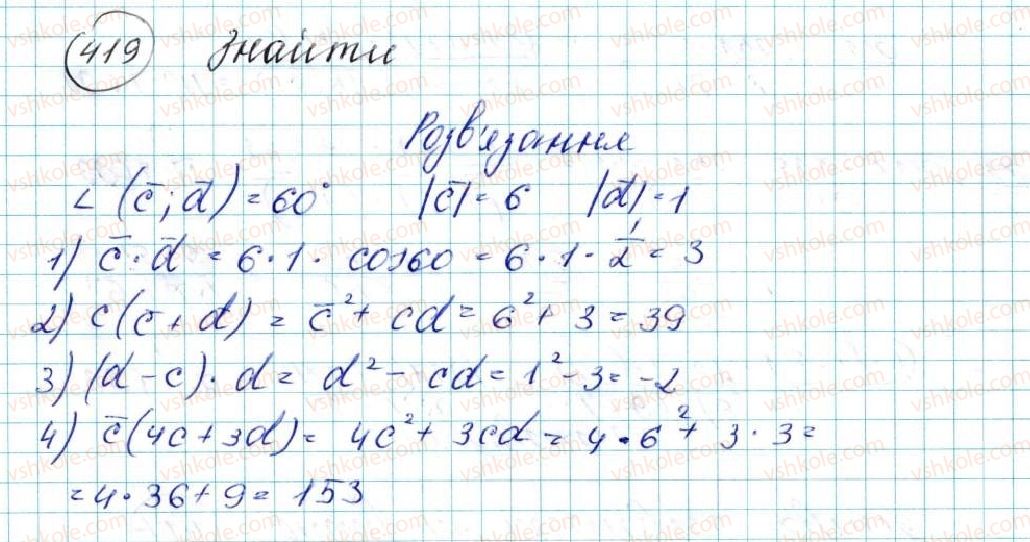 419 Знайти
Розв'язання
∠ (c̄; d̄) = 60° |c̄| = 6 |d̄| = 1
1) c̄ · d̄ = 6 · 1 · cos60 = 6 · 1 · 1/2 = 3
2) c(c̄ + d) = c̄² + cd = 6² + 3 = 39
3) (d - c) · d = d² - cd = 1² - 3 = -2
4) c̄(4c + 3d) = 4c² + 3cd = 4 · 6² + 3 · 3 =
= 4 · 36 + 9 = 153
vshkole.com